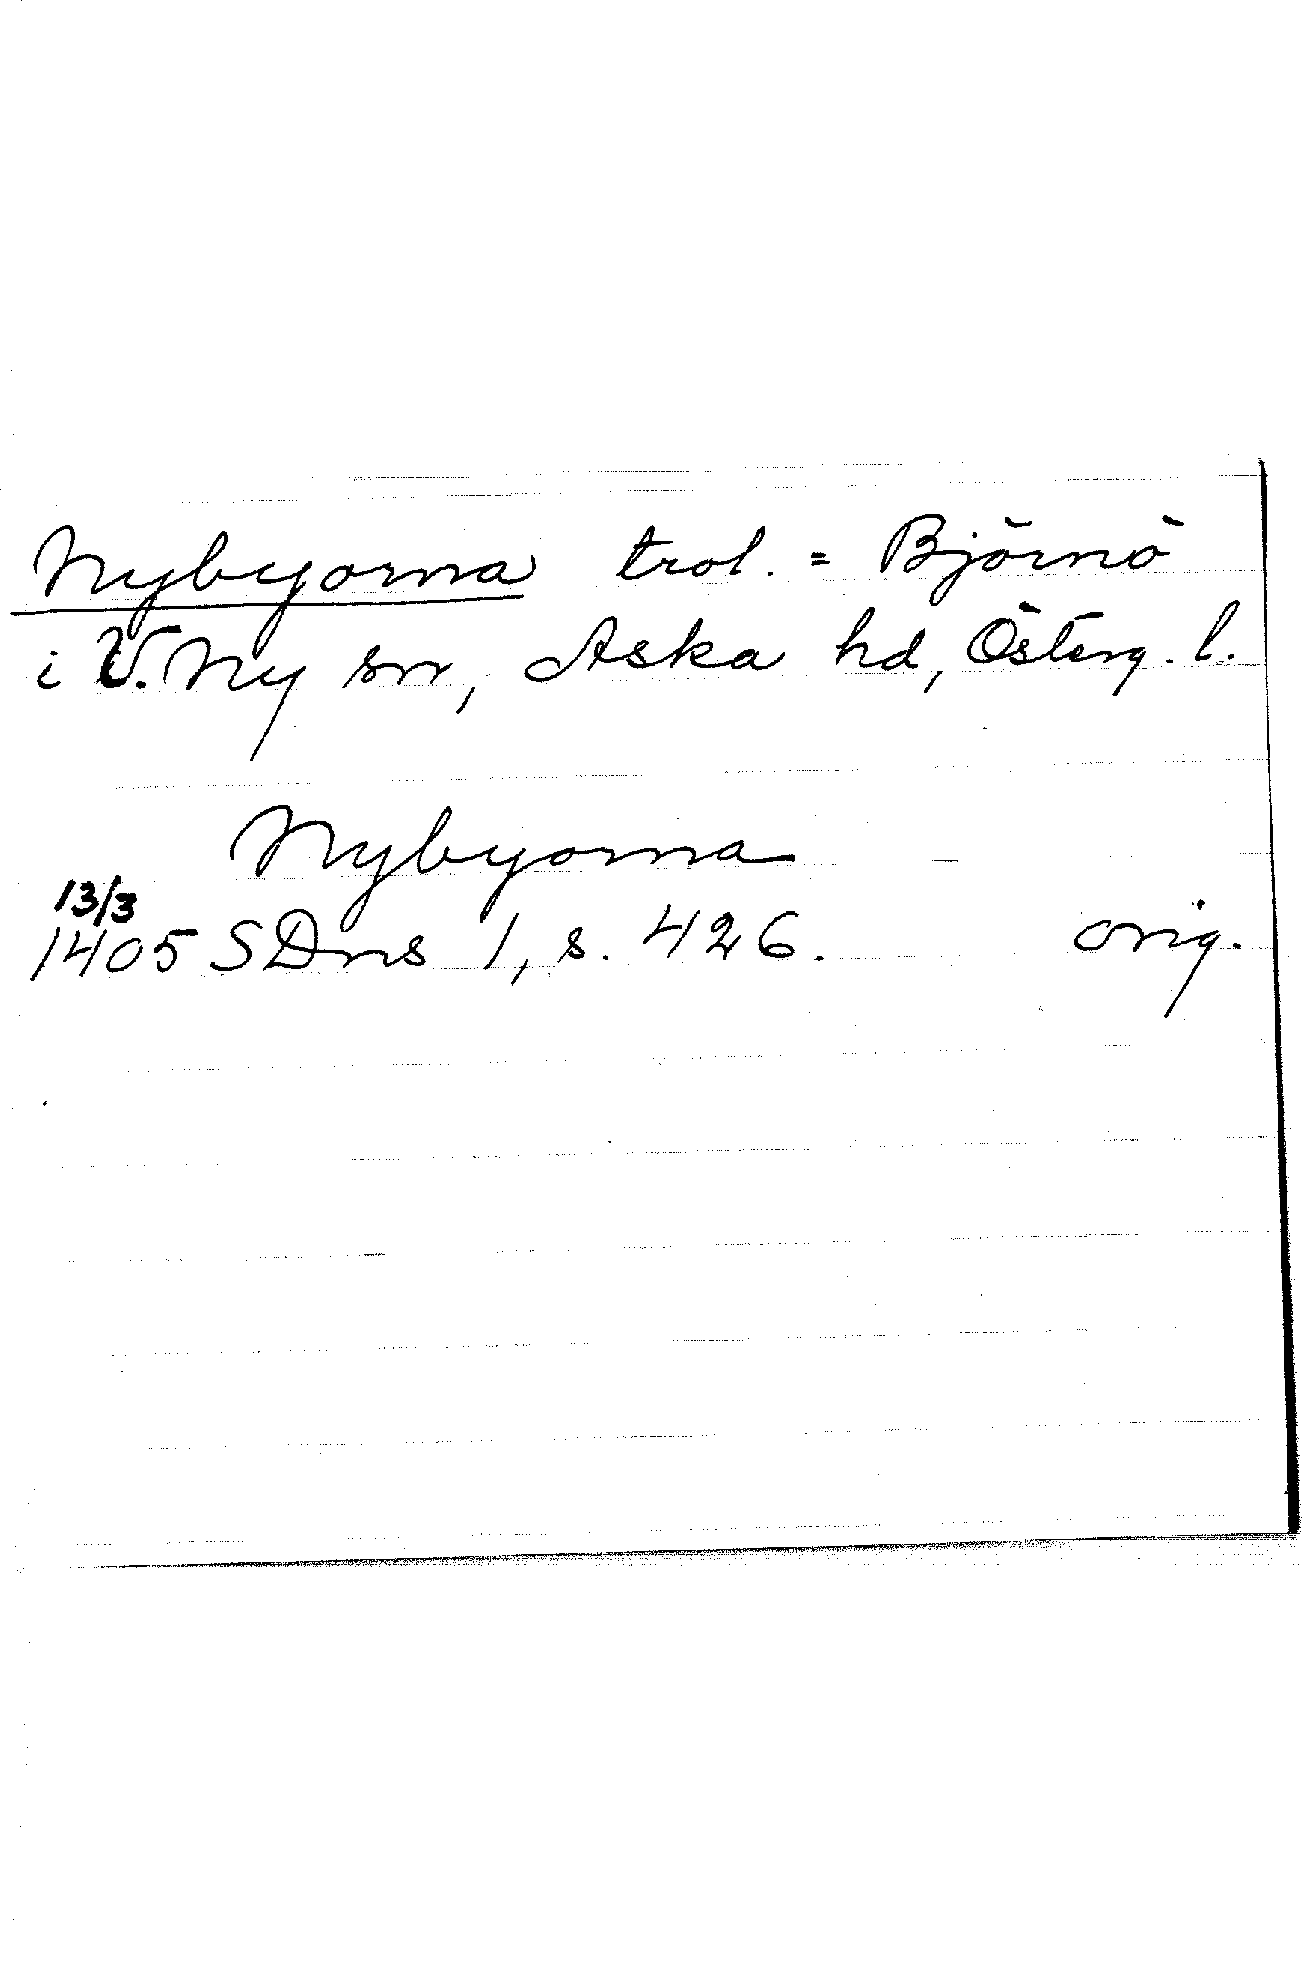 Nybyorna trol. = Björnö
i V. Ny sn, Aska hd, Österg. l.
Nybyorna
13/3
1405 SDns 1, s. 426. orig.